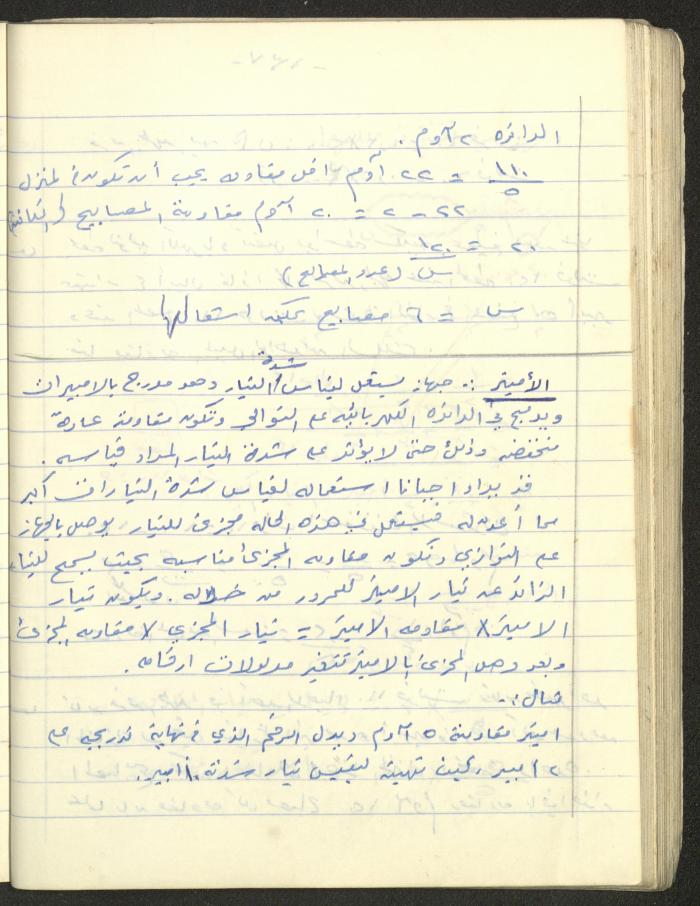 الدائرة ٢ آوم .
١١٠ / ٥ = ٢٢ آوم اقل مقاومه يجب أن تكون في المنزل
٢٢ - ٢ = ٢٠ آوم مقاومة المصابيح
٢٠ = ١٢٠ / س (عدد المصابيح)
س = ٦ مصابيح يمكن اشعالها
الأميتر :- جهاز يستعمل لقياس شدة التيار وهو مدرج بالامبيرات
ويدمج في الدائره الكهربائيه على التوالي وتكون مقاومته عادة
منخفضه وذلك حتى لا يؤثر على شدة التيار المراد قياسه .
قد يراد احيانا استعماله لقياس شدة التيارات أكبر
مما أعد له فيستعمل في هذه الحاله مجزئ للتيار يوصل بالجهاز
على التوازي وتكون مقاومه المجزئ مناسبه بحيث يسمح للتيار
الزائد عن تيار الاميتر للمرور من خلاله . ويكون تيار
الاميتر X مقاومه الاميتر = تيار المجزئ X مقاومه المجزئ
وبعد وصل المجزئ بالاميتر تتغير مدلولات ارقامه .
مثال :-
اميتر مقاومته ٥ آوم ويدل الرقم الذي في نهاية تدريجه على
٢ امبير كيف تهيئه ليقيس تيار شدته ١٠ امبير .